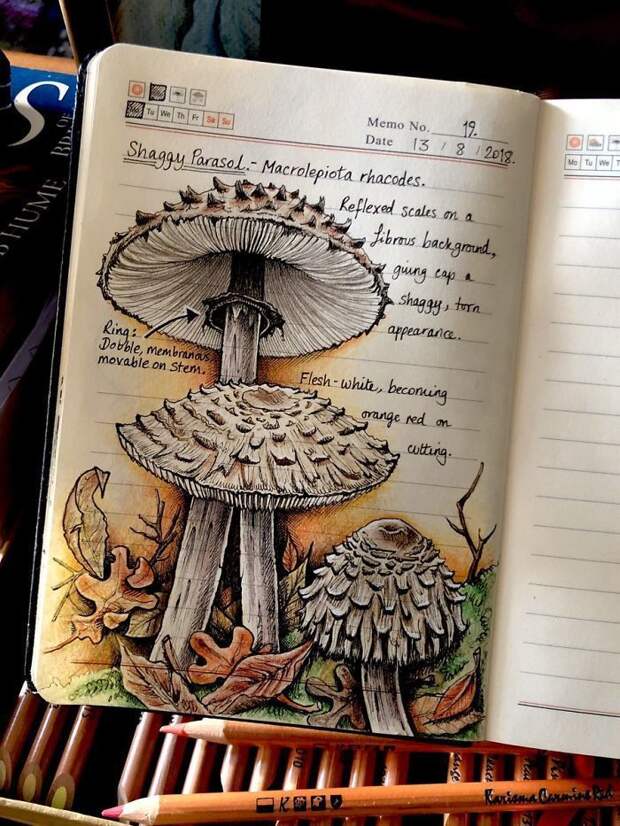 S
HUME
Mo Tu We Th Fr Sa Su
Memo No. 19.
Date 13 / 8 / 2018.
Mo Tu We T
Shaggy Parasol. - Macrolepiota rhacodes.
Reflexed scales on a
fibrous background,
giving cap a
shaggy, torn
appearance.
Ring:
Dobble, membranous
movable on stem.
Flesh - white, becoming
orange red on
cutting.
Karisma Carmine Red